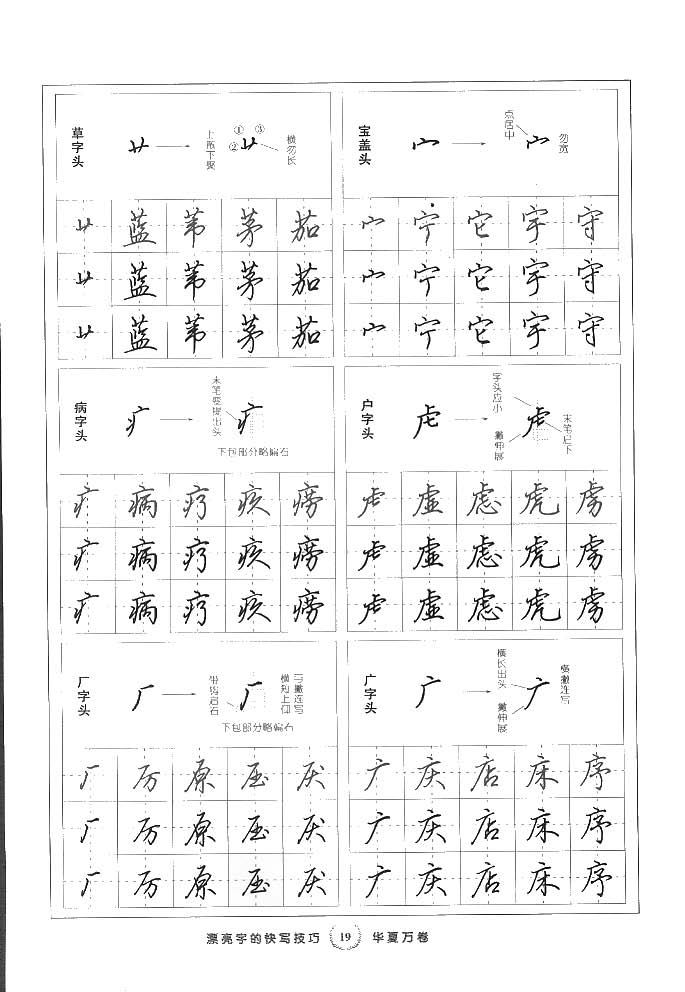 草字头
艹
上散下聚
① ③
② 艹
横勿长
艹 蓝 苇 茅 茄
艹 蓝 苇 茅 茄
艹 蓝 苇 茅 茄
宝盖头
宀
点居中
宀
勿宽
宀 宁 它 宇 守
宀 宁 它 宇 守
宀 宁 它 宇 守
病字头
疒
末笔变提出头
疒
下包部分略偏右
疒 病 疗 疾 痨
疒 病 疗 疾 痨
疒 病 疗 疾 痨
户字头
虍
字头应小
虍
撇伸展
末笔启下
虍 虚 虑 虎 虏
虍 虚 虑 虎 虏
虍 虚 虑 虎 虏
厂字头
厂
带钩启右
厂
横短上仰
与撇连写
下包部分略偏右
厂 厉 原 压 厌
厂 厉 原 压 厌
厂 厉 原 压 厌
广字头
广
横长出头
广
撇伸展
横撇连写
广 庆 店 床 序
广 庆 店 床 序
广 庆 店 床 序
漂亮字的快写技巧 19 华夏万卷